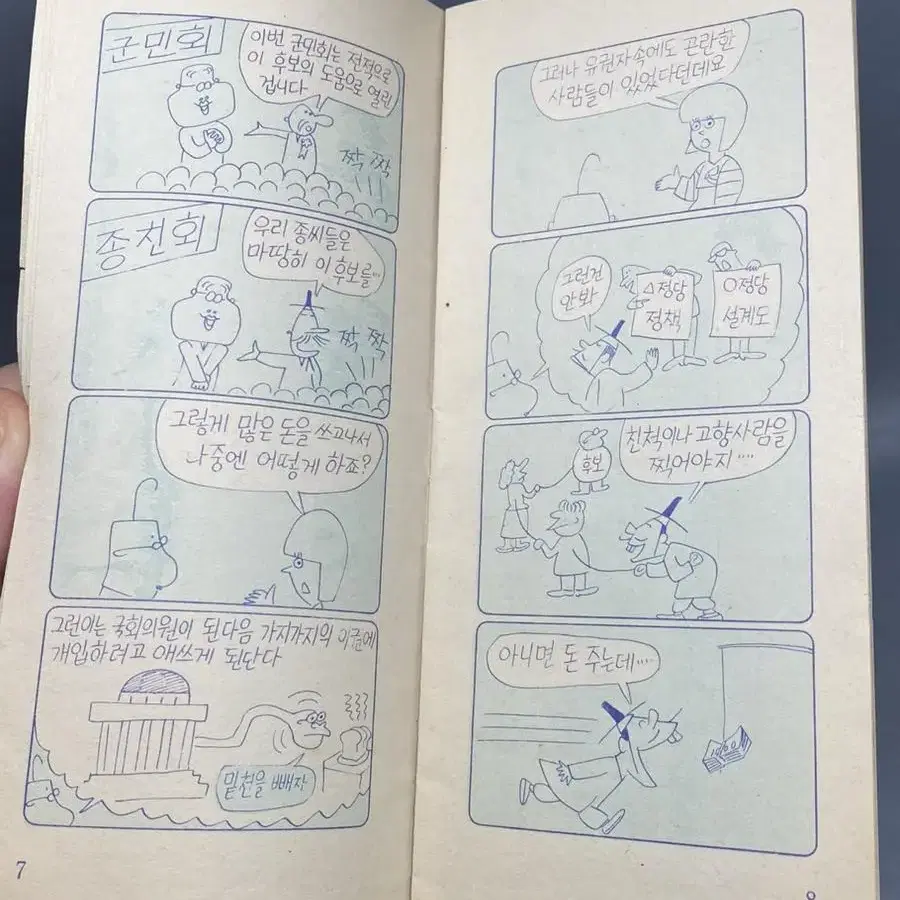 군민회
이번 군민회는 전적으로
이 후보의 도움으로 열린
겁니다
짝 짝
종친회
우리 종씨들은
마땅히 이 후보를…
짝 짝
그렇게 많은 돈을 쓰고나서
나중엔 어떻게 하죠?
그런이는 국회의원이 된다음 가지가지의 이권에
개입하려고 애쓰게 된단다
밑천을 빼자
7
그러나 유권자속에도 곤란한
사람들이 있었다던데요
그런건
안봐
△정당
정책
○정당
설계도
친척이나 고향사람을
찍어야지····
후보
아니면 돈 주는데····